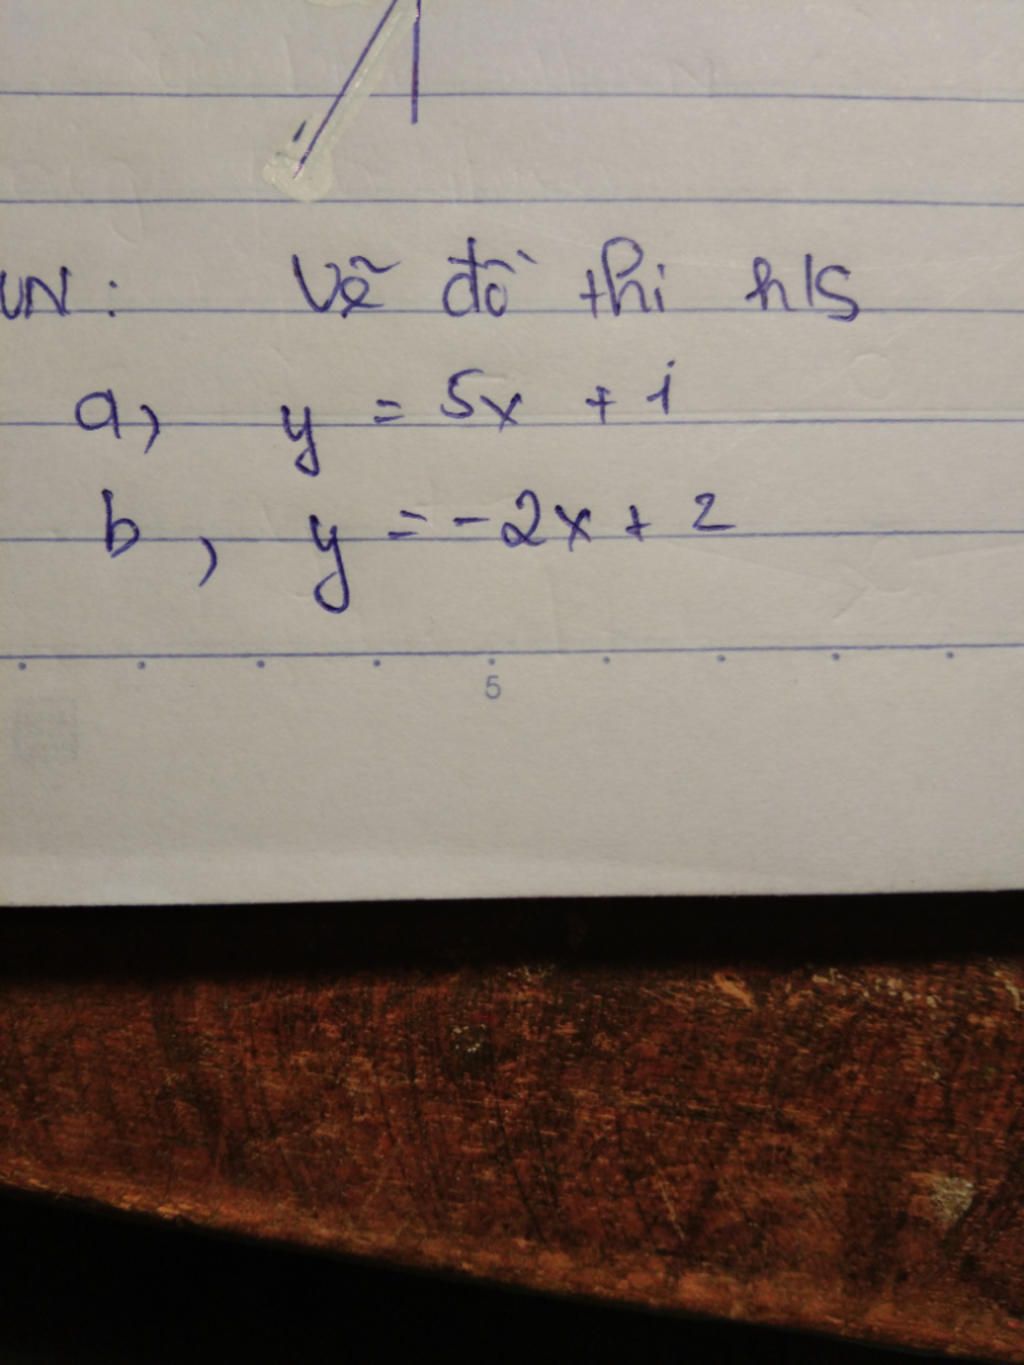 VN: Vẽ đồ thi h/s
a, y = 5x + 1
b, y = -2x + 2
5